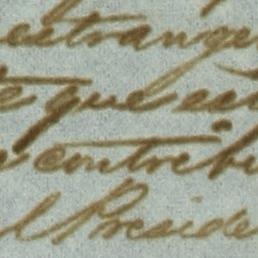 estrange
e que est
contribu
l Preside